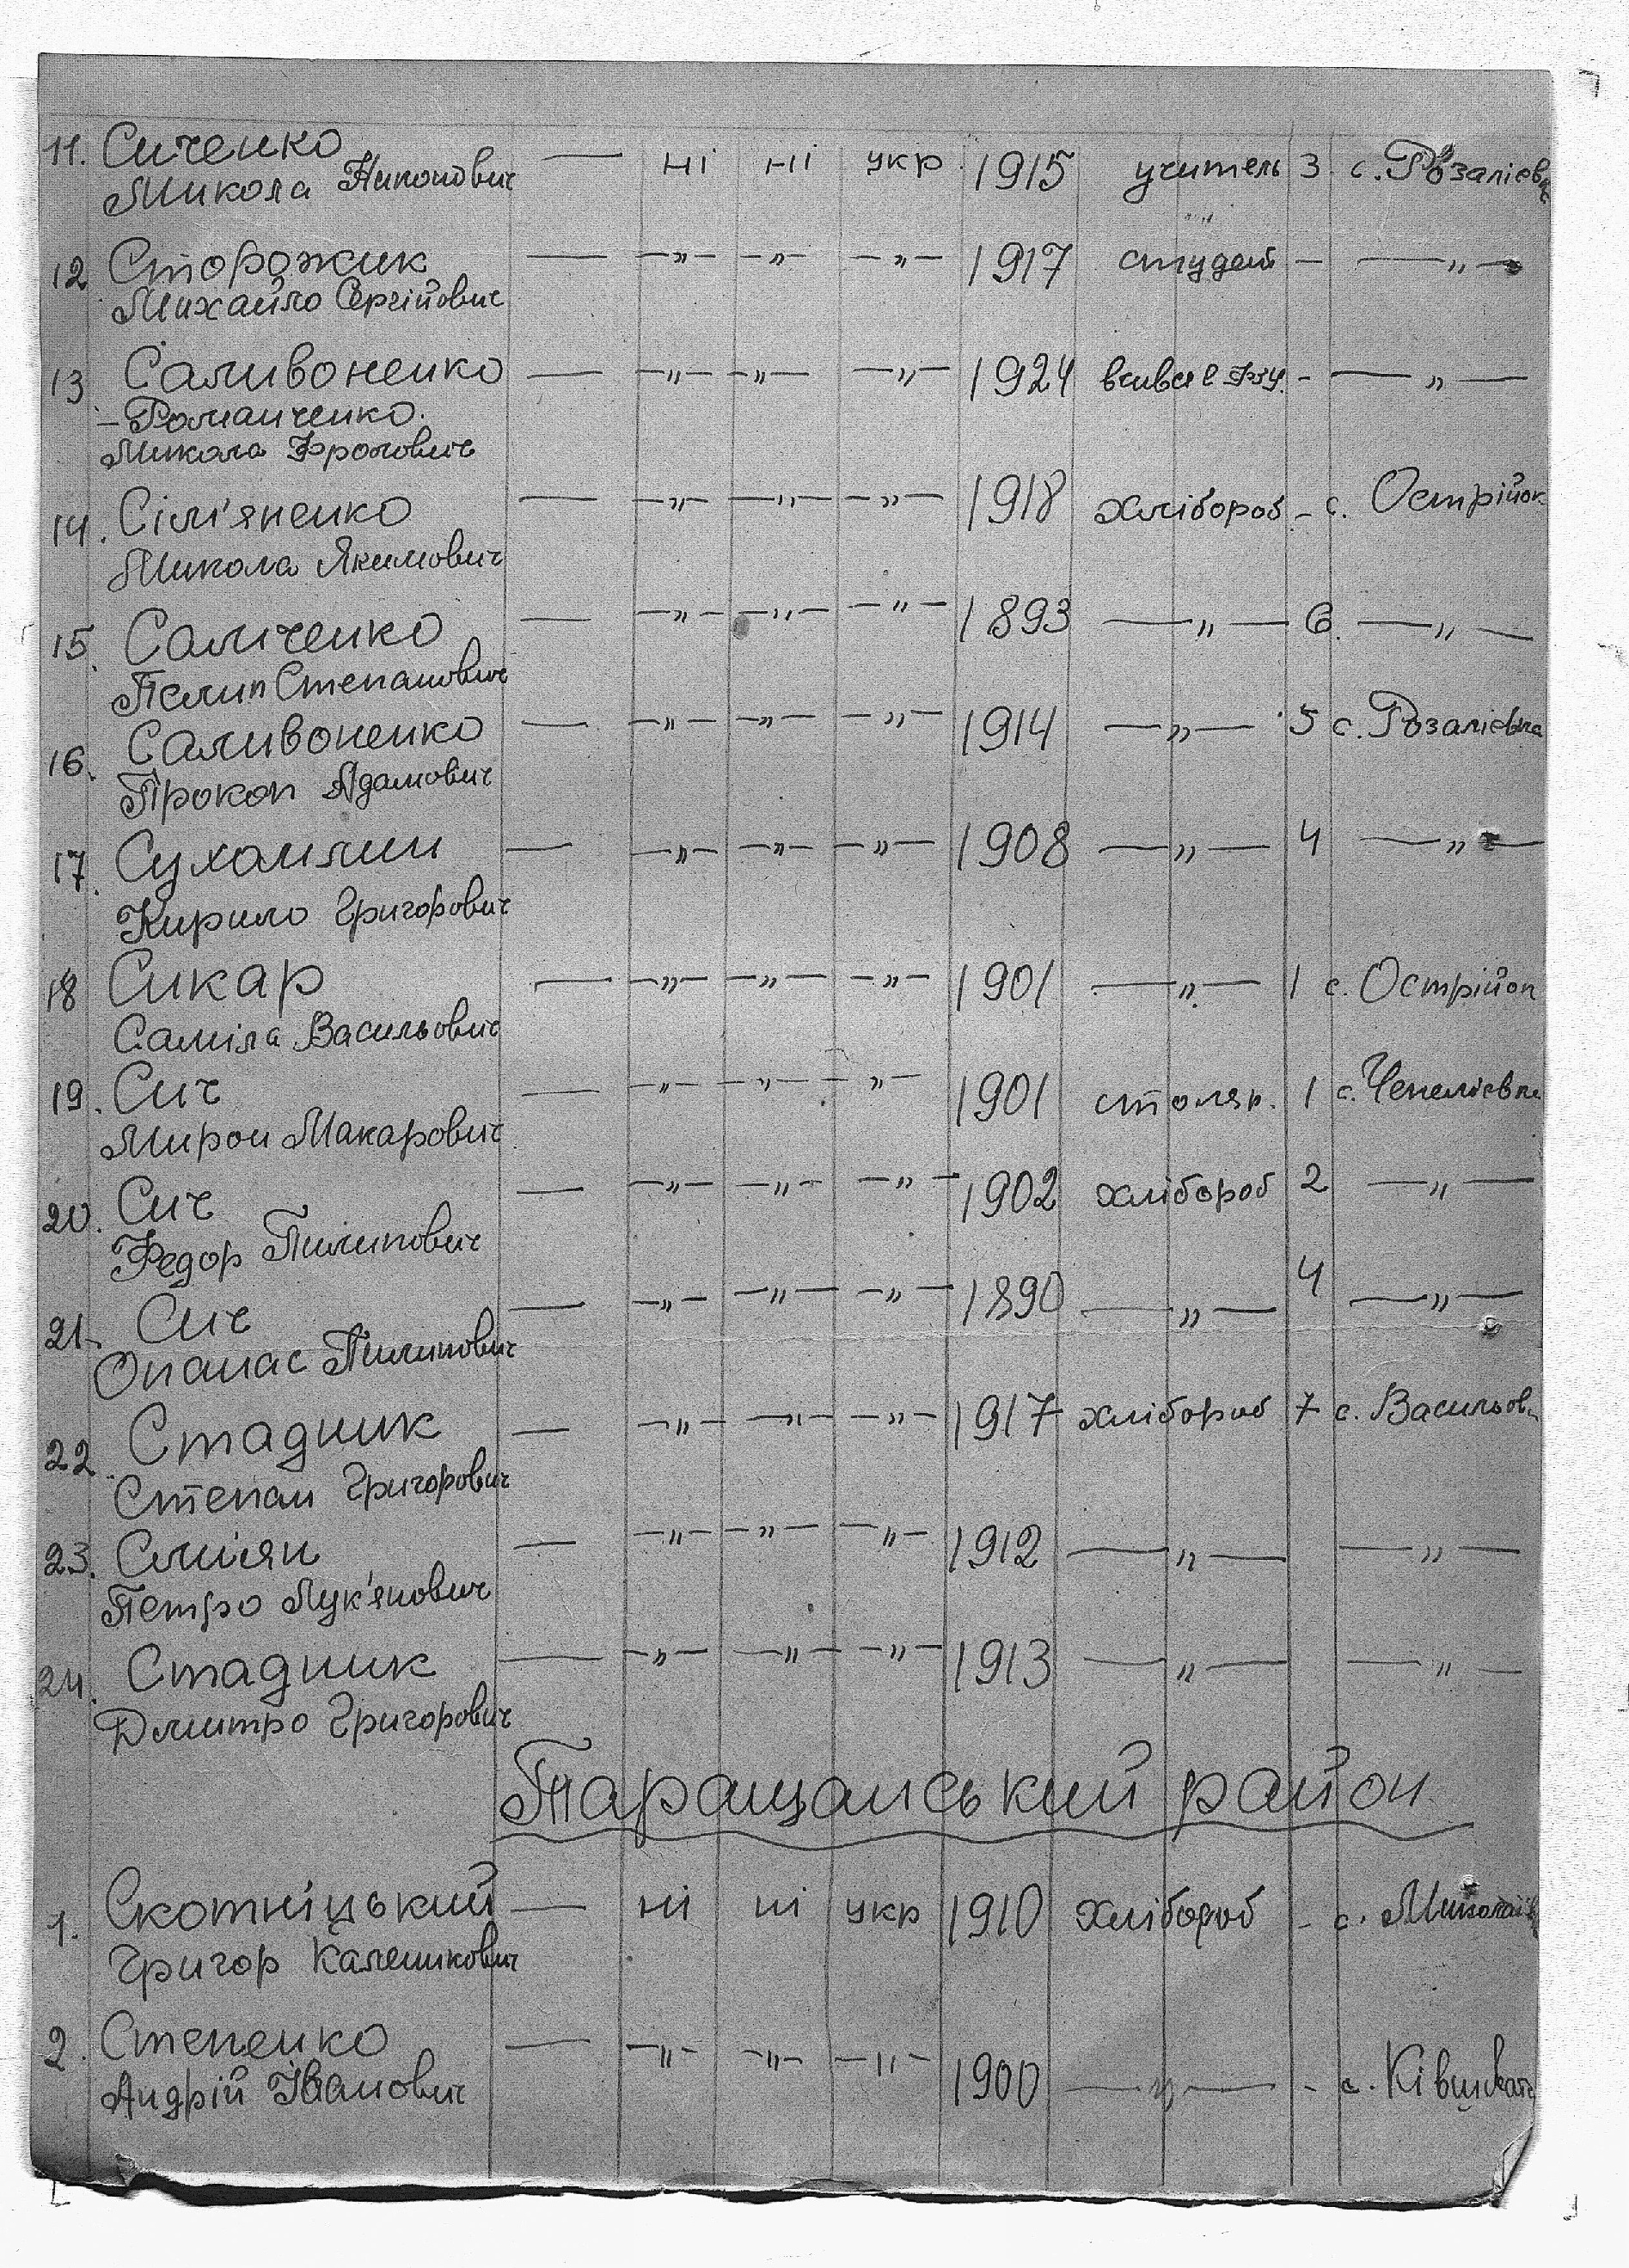 11. Сиченко — ні ні укр. 1915 учитель 3 с. Розалієвк
Микола Никонович
12 Сторожик — —„— —„— —„— 1917 студент – —„—
Михайло Сергійович
13 Саливоненко — —„— —„— —„— 1924 вчився в ФЗУ. – —„—
– Романченко.
Микола Фролович
14. Сім'яненко — —„— —„— —„— 1918 хлібороб – с. Острійок
Микола Якимович
15. Самченко — —„— —„— —„— 1893 —„— 6. —„—
Пелип Степанович
16. Саливоненко — —„— —„— —„— 1914 —„— 5 с. Розалієвка
Прокоп Адамович
17. Сухомлин — —„— —„— —„— 1908 —„— 4 —„—
Кирило Григорович
18 Сикар — —„— —„— —„— 1901 —„— 1 с. Острійок
Саміла Васильович
19. Сич — —„— —„— —„— 1901 столяр. 1 с. Чепелієвка
Мирон Макарович
20. Сич — —„— —„— —„— 1902 хлібороб 2 —„—
Федор Пилипович
21. Сич — —„— —„— —„— 1890 —„— 4 —„—
Опанас Пилипович
22. Стадник — —„— —„— —„— 1917 хлібороб 7 с. Васильов
Степан Григорович
23. — —„— —„— —„— 1912 —„— —„—
Петро Лук'янович
24. Стадник — —„— —„— —„— 1913 —„— —„—
Дмитро Григорович
Таращанський район
1. Скотніцький — ні ні укр 1910 хлібороб – с.
Григор Каленикович
2. Степенко — —„— —„— —„— 1900 —„— – с.
Андрій Іванович